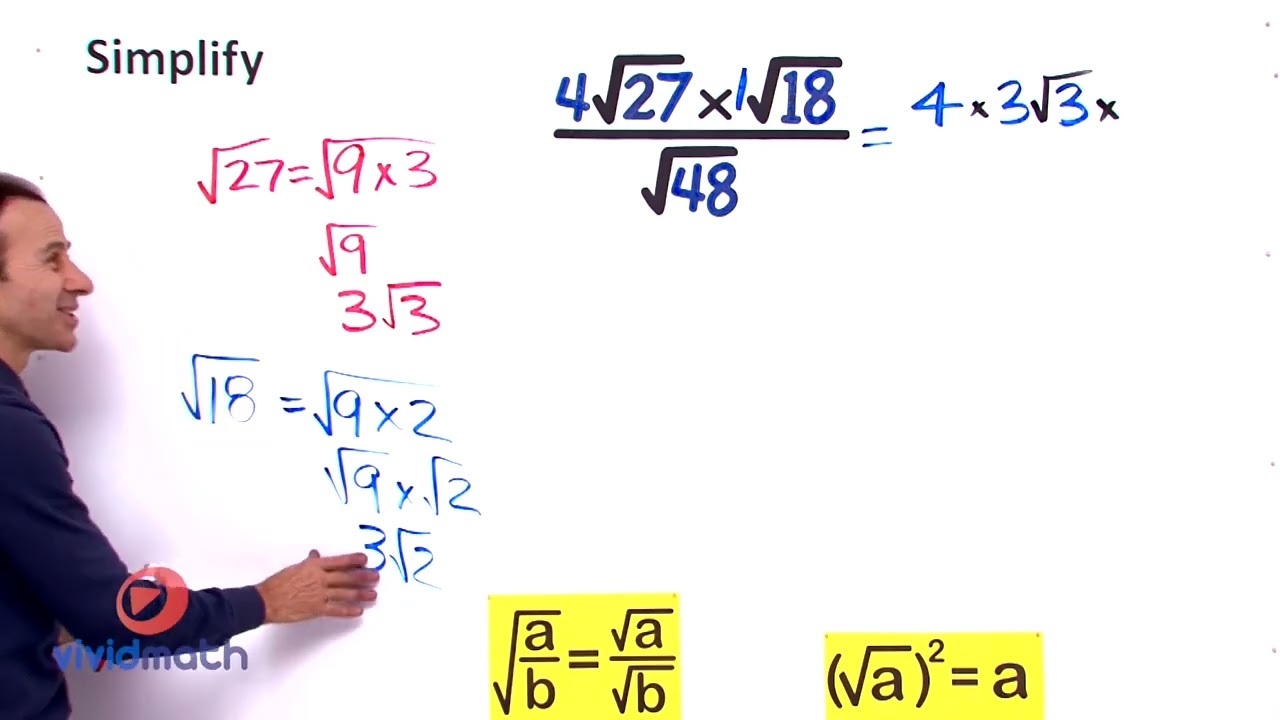 Simplify
4√27 × 1√18 = 4 × 3√3 ×
√48
√27 = √9 × 3
√9
3√3
√18 = √9 × 2
√9 × √2
3√2
vividmath
√a/b = √a/√b
(√a)² = a